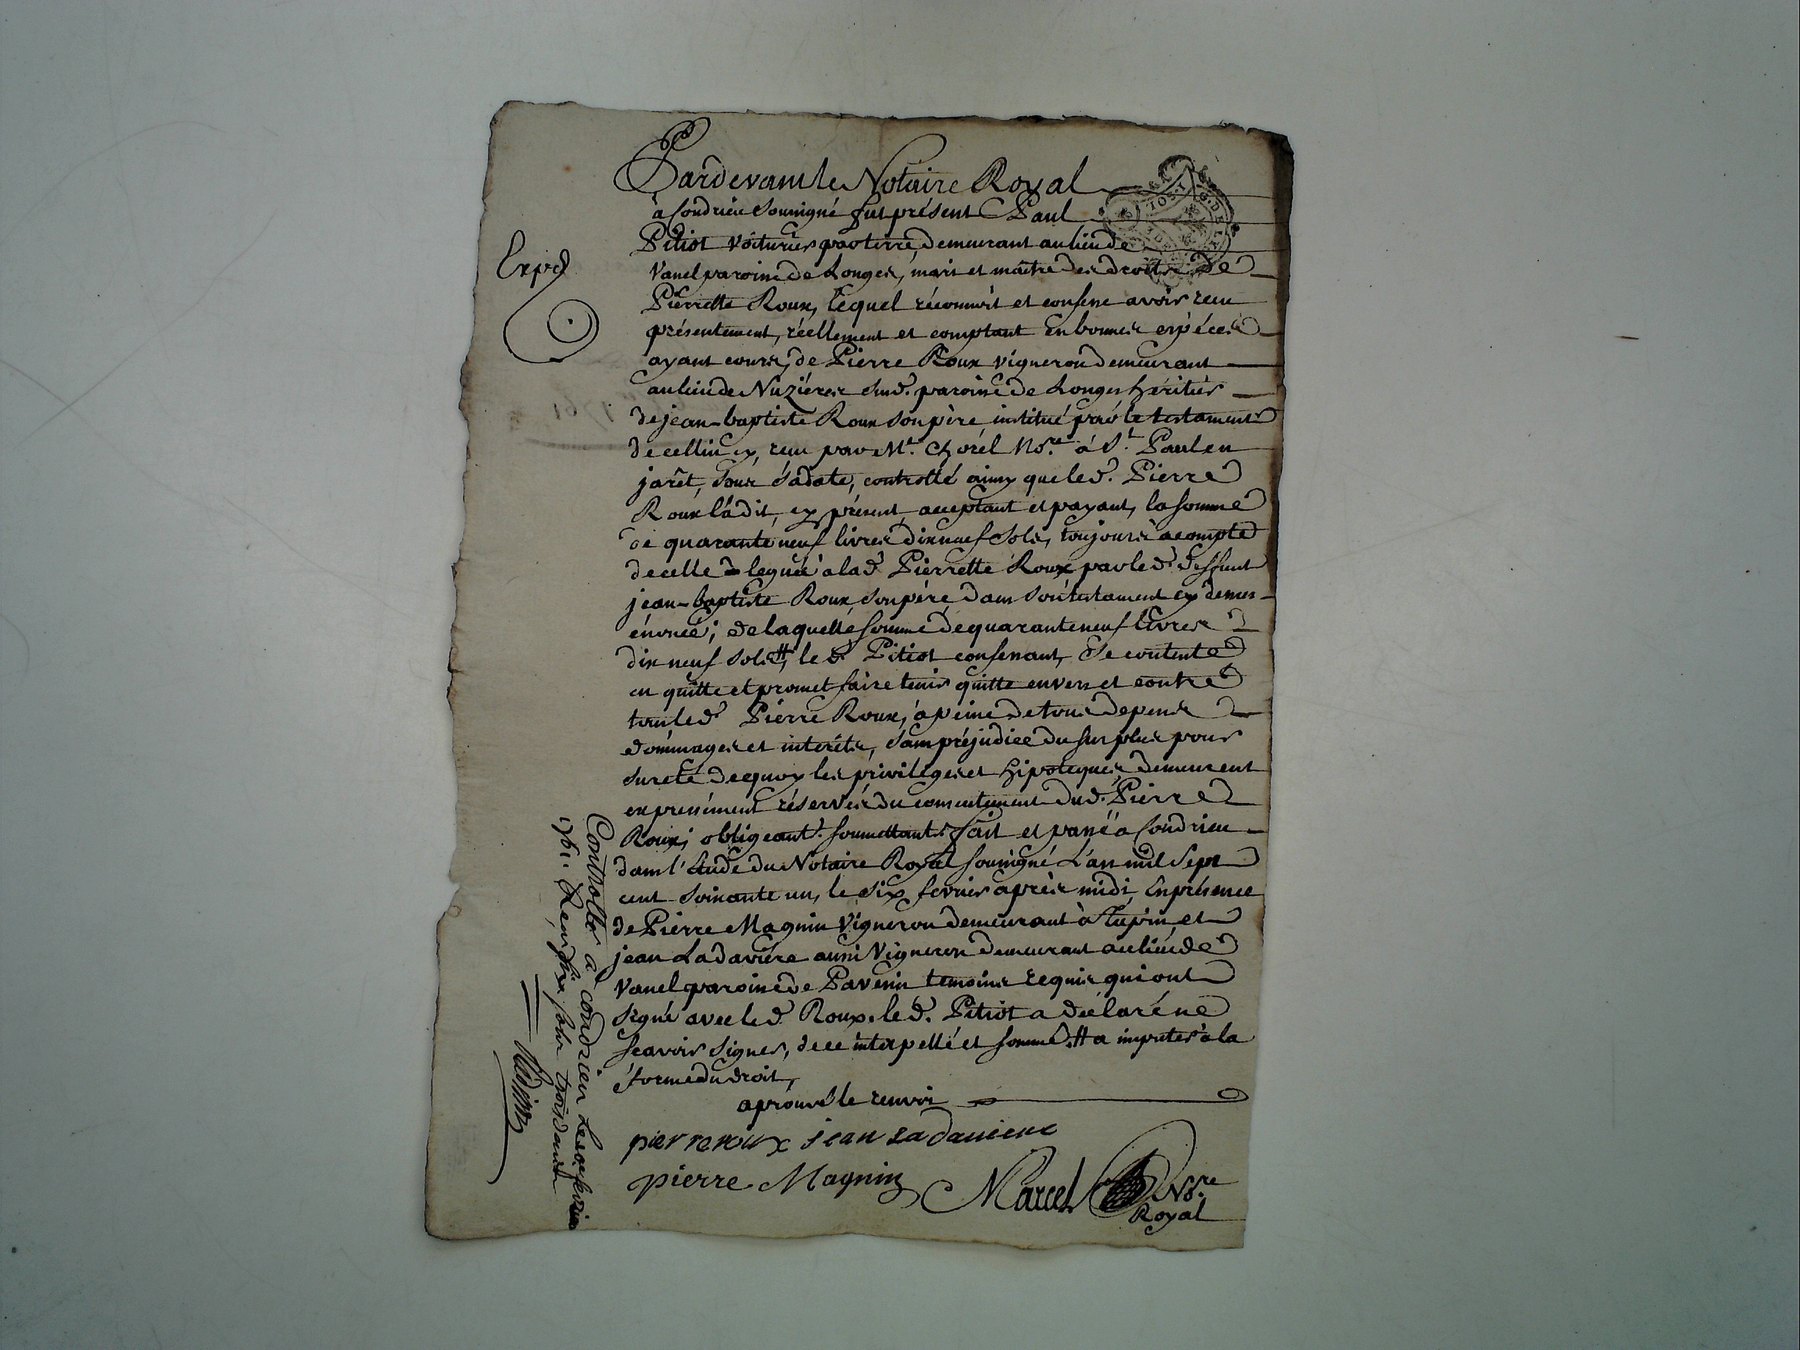 Pardevant le Notaire Royal
à Condrieu soussigné fut présent Paul
Pitiot voiturier par terre demeurant au lieu de
Vanel paroisse de Longes, mari et maitre des droits de
Pierrette Roux, lequel réconnoit et confesse avoir recu
présentement, réellement et comptant en bonnes espéces
ayant cours, de Pierre Roux vigneron demeurant
au lieu de Nuziéres sud. paroisse de Longes héritier
de jean-baptiste Roux son père institué par le testament
de celluicy, recu par Me. Chorel Nore. à St. Paul en
jarêt, sous sa date, controllé ainsy que led. Pierre
Roux l'a dit, cy présent acceptant et payant, la somme
de quarante neuf livres dixneuf sols, toujours acompte
de celle leguée à lad. Pierrette Roux par led. deffunt
jean-baptiste Roux son pére dans son testament cy dessus
énoncé; de laquelle somme de quarante neuf livres
dix neuf sols #, led. Pitiot confessant, se contente
en quitte et promet faire tenir quitte envers et contre
tous led. Pierre Roux, à peine de tous depens
dommages et interêts, sans préjudice du surplus pour
sureté de quoy les privileges et hipoteques demeurent
expressément réservés du consentement dud. Pierre
Roux; obligeant. soumettant. fait et passé à Condrieu
dans l'étude du Notaire Royal soussigné L'an mil sept
cent soixante un, le six fevrier aprés midi, En présence
de Pierre Magnin Vigneron demeurant à Tupin, et
jean Ladaviere aussi Vigneron demeurant au lieu de
Vanel paroisse de Pavezin temoins requis qui ont
signé avec led. Roux. led. Pitiot a déclaré ne
scavoir signer, de ce interpellé et sommé. # a imputer à la
forme du droit,
aprouvé le renvoi
pierre roux jean Ladaviere
pierre Magnin Marcel Nore.
Royal
Expéd
Controllé à condrieu le
1761. Reçu